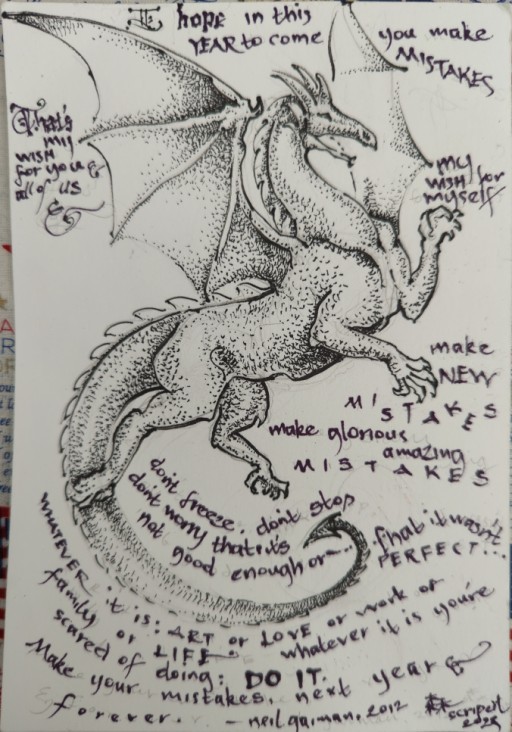 I hope in this
YEAR to come
you make
MISTAKES
That's
my
wish
for you &
all of us
my
wish for
myself
make
NEW
MISTAKES
make glorious
amazing
MISTAKES
don't freeze, don't stop
don't worry that it's
not good enough or
that it wasn't
PERFECT...
WHATEVER it is: ART or LOVE or work or
family or LIFE. whatever it is you're
scared of doing: DO IT.
Make your mistakes, next year &
forever. - neil gaiman, 2012
script